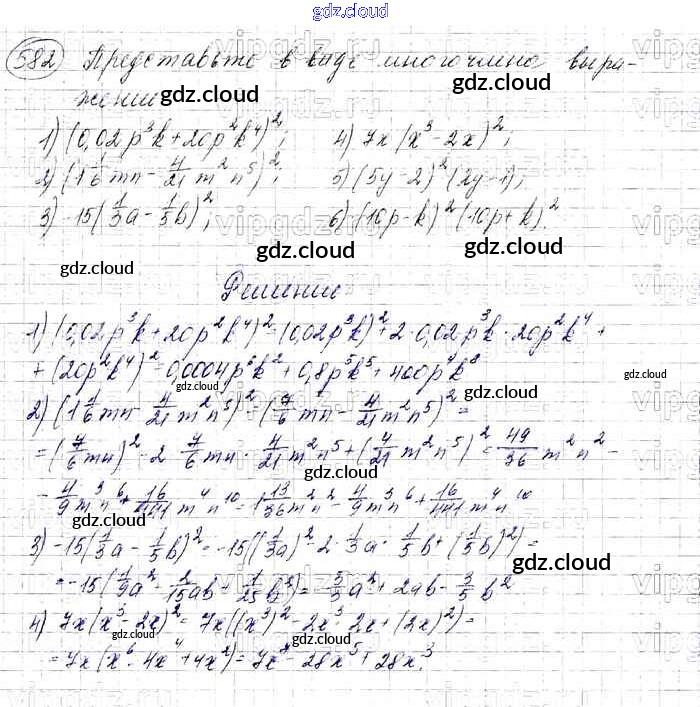 gdz.cloud
582 Представьте в виде многочлена выра-
жение
gdz.cloud
1) (0,02p³k+20p²k⁴)²; 4) 7x(x³-2x)²;
2) (1 1/6 mn - 4/21 m²n⁵)²; 5) (5y-2)²(2y+1);
3) -15(1/3a - 1/5b)²; 6) (10p-k)²(10p+k)²
gdz.cloud
gdz.cloud
gdz.cloud
Решение
1) (0,02p³k+20p²k⁴)²=(0,02p³k)²+2·0,02p³k·20p²k⁴+
+(20p²k⁴)²=0,0004p⁶k²+0,8p⁵k⁵+400p⁴k⁸
gdz.cloud
gdz.cloud
gdz.cloud
2) (1 1/6 mn - 4/21 m²n⁵)²=(7/6 mn - 4/21 m²n⁵)²=
=(7/6 mn)²-2·7/6 mn·4/21 m²n⁵+(4/21 m²n⁵)²=49/36 m²n²-
gdz.cloud
-4/9 m³n⁶+16/441 m⁴n¹⁰=1 13/36 m²n²-4/9 m³n⁶+16/441 m⁴n¹⁰
3) -15(1/3a-1/5b)²=-15((1/3a)²-2·1/3a·1/5b+(1/5b)²)=
gdz.cloud
=-15(1/9a²-2/15ab+1/25b²)=-5/3a²+2ab-3/5b²
gdz.cloud
4) 7x(x³-2x)²=7x((x³)²-2x³·2x+(2x)²)=
gdz.cloud
gdz.cloud
=7x(x⁶-4x⁴+4x²)=7x⁷-28x⁵+28x³
gdz.cloud